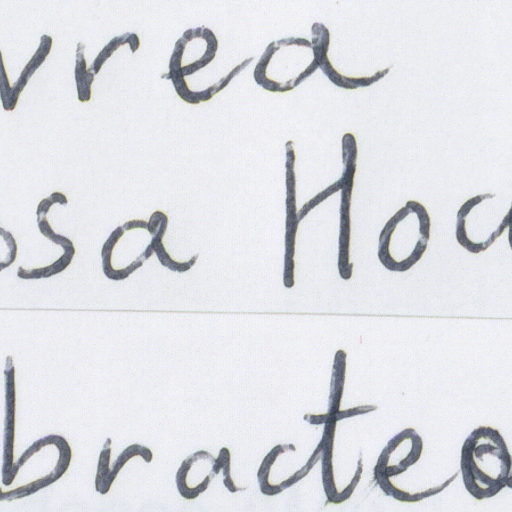 vrea
osa Hoa
bractea